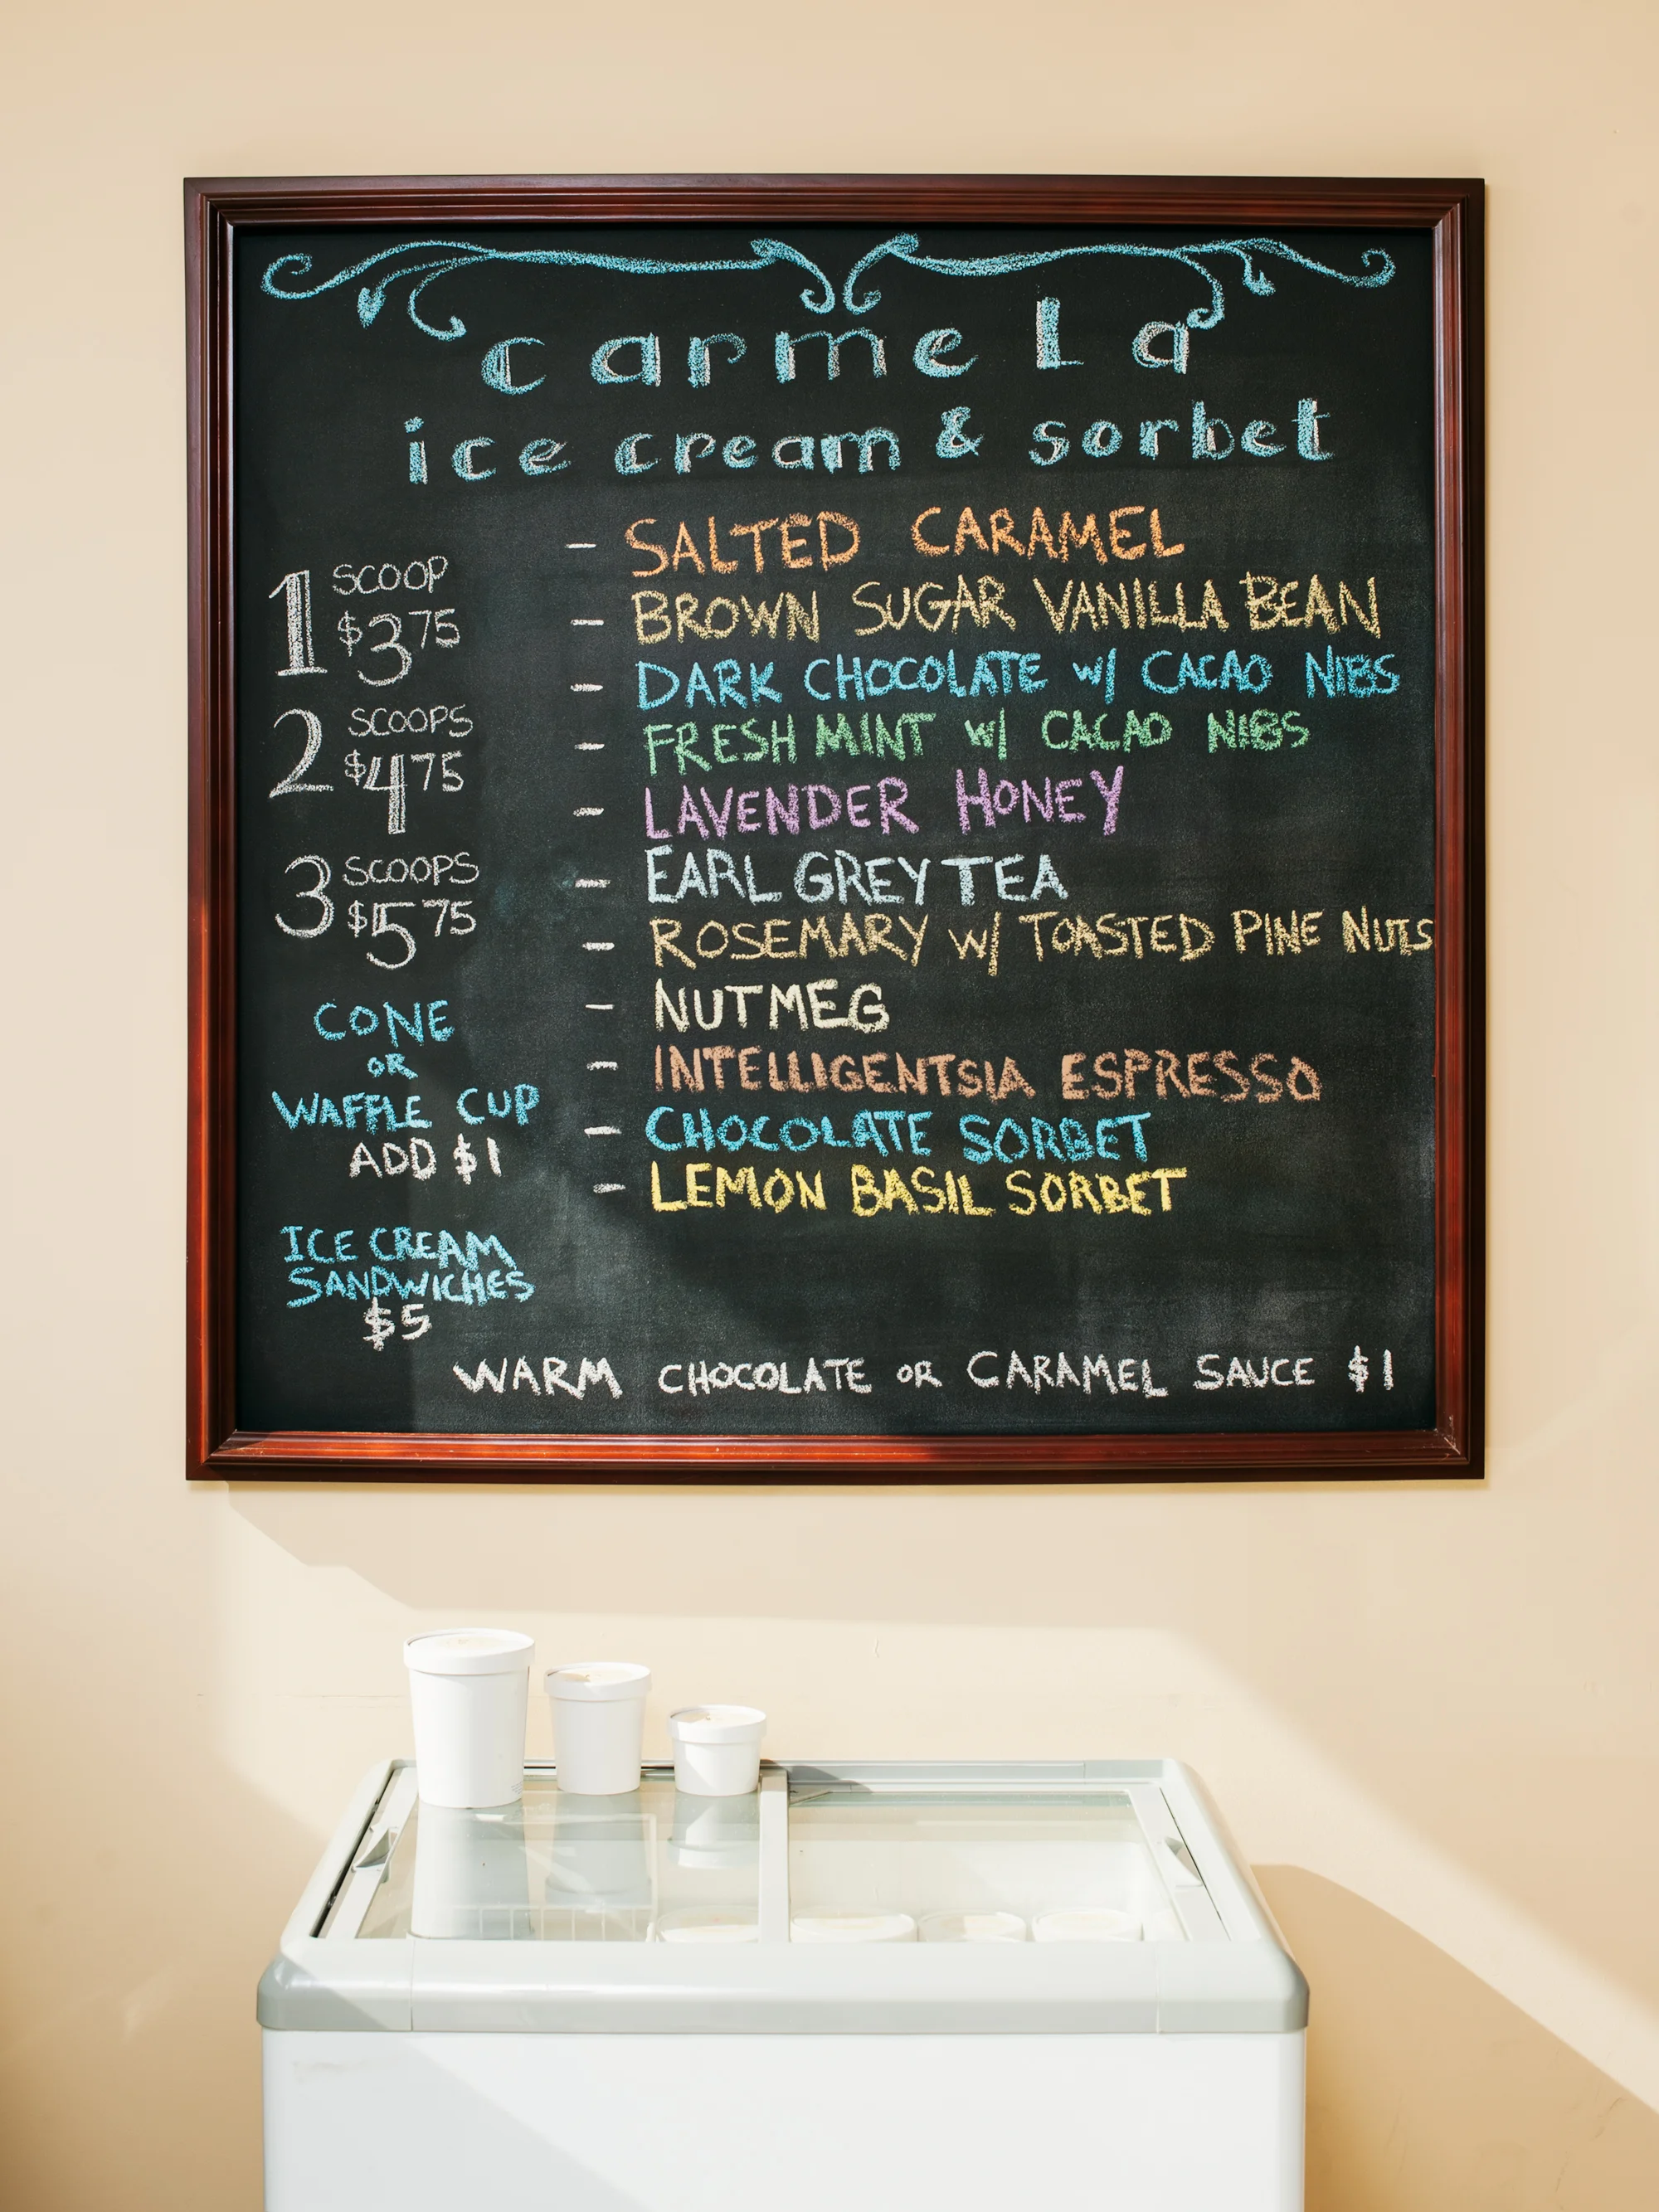 carmela
ice cream & sorbet
1 SCOOP
$3.75
2 SCOOPS
$4.75
3 SCOOPS
$5.75
CONE
OR
WAFFLE CUP
ADD $1
ICE CREAM
SANDWICHES
$5
- SALTED CARAMEL
- BROWN SUGAR VANILLA BEAN
- DARK CHOCOLATE w/ CACAO NIBS
- FRESH MINT w/ CACAO NIBS
- LAVENDER HONEY
- EARL GREY TEA
- ROSEMARY w/ TOASTED PINE NUTS
- NUTMEG
- INTELLIGENTSIA ESPRESSO
- CHOCOLATE SORBET
- LEMON BASIL SORBET
WARM CHOCOLATE OR CARAMEL SAUCE $1